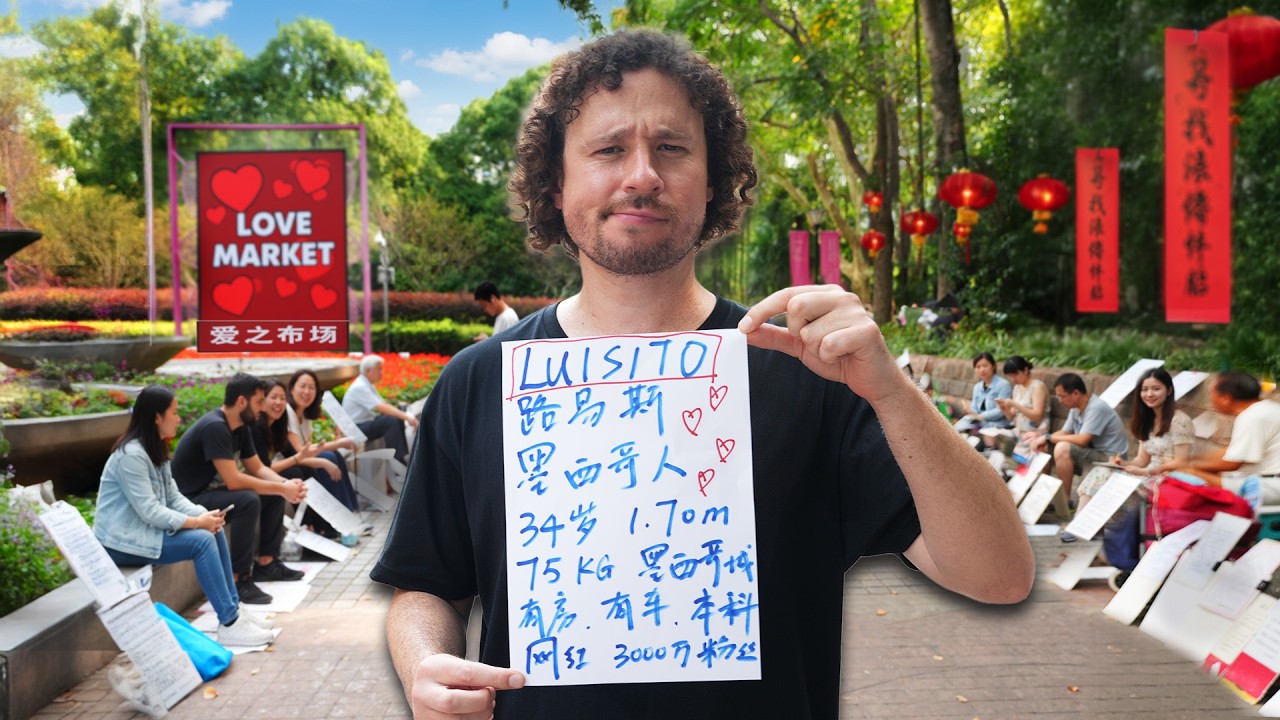 LOVE
MARKET
爱之布场
LUISITO
路易斯
墨西哥人
34岁 1.70m
75 KG 墨西哥城
有房.有车.本科
网红 3000万粉丝
寻找
寻找